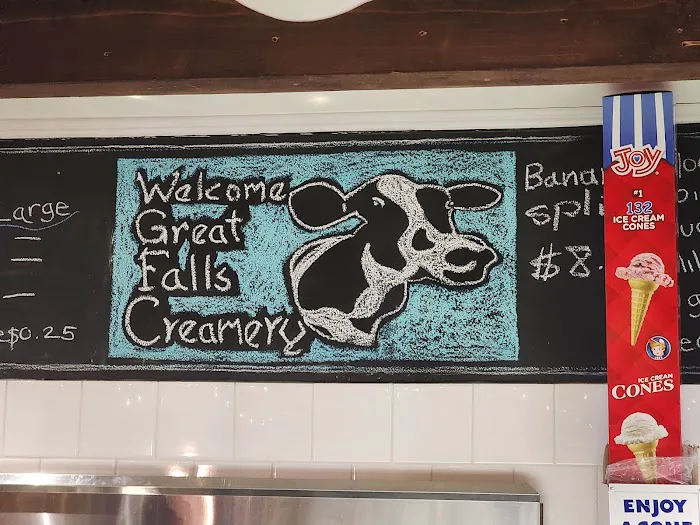 Large
$0.25
Welcome
Great
Falls
Creamery
$8.
JOY
#1
132
ICE CREAM
CONES
ICE CREAM
CONES
ENJOY